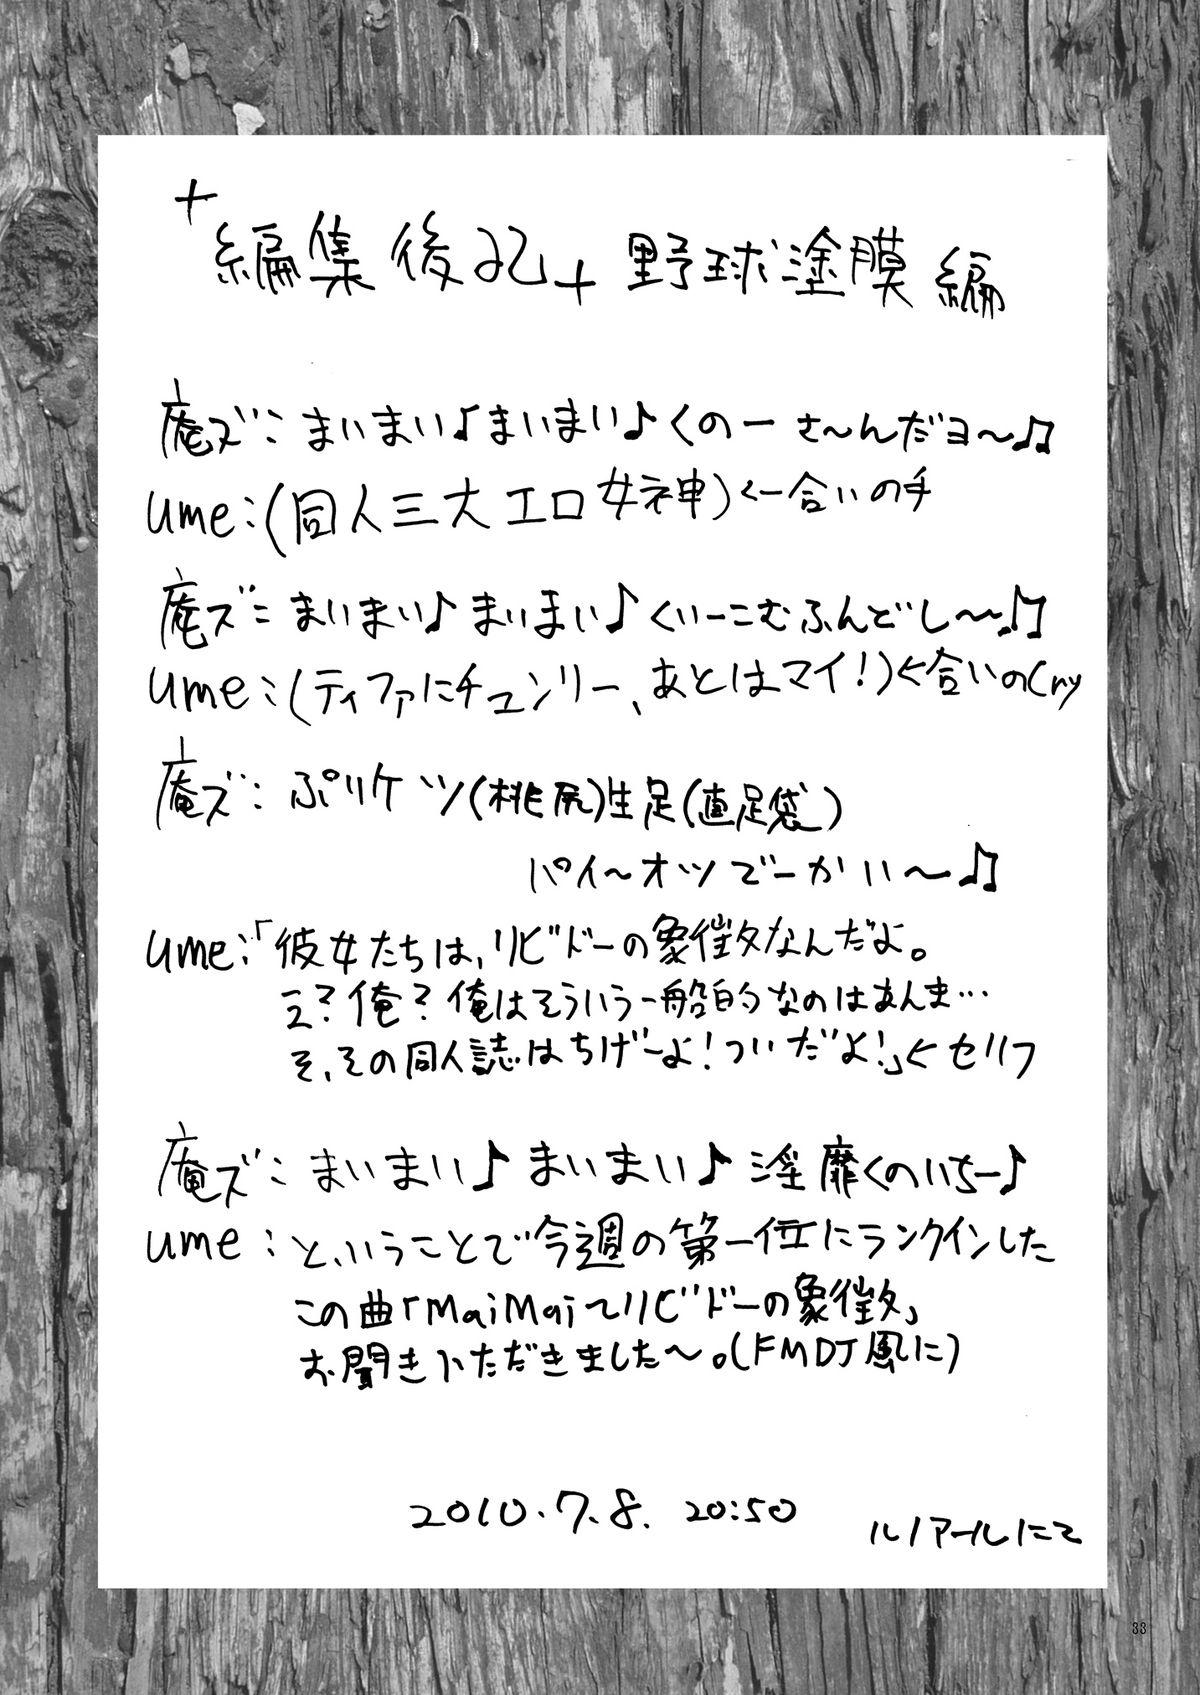 +編集後記+野球塗膜編
庵ズ：まいまい♪まいまい♪くのーさ〜んだヨ〜♫
ume：(同人三大エロ女神)←合いの手
庵ズ：まいまい♪まいまい♪くいーこむふんどし〜♫
ume：(ティファにチュンリー、あとはマイ！)←合いの(ry
庵ズ：ぷりケツ(桃尻)生足(直足袋)
パイ〜オツでーかい〜♫
ume：「彼女たちは、リビドーの象徴なんだよ。
え？俺？俺はそういう一般的なのはあんま…
そ、その同人誌はちげーよ！ついだよ！」←セリフ
庵ズ：まいまい♪まいまい♪淫靡くのいちー♪
ume：と、いうことで今週の第一位にランクインした
この曲「MaiMai〜リビドーの象徴」
お聞きいただきました〜。(FMDJ風に)
2010.7.8. 20:50
ルノアールにて
33